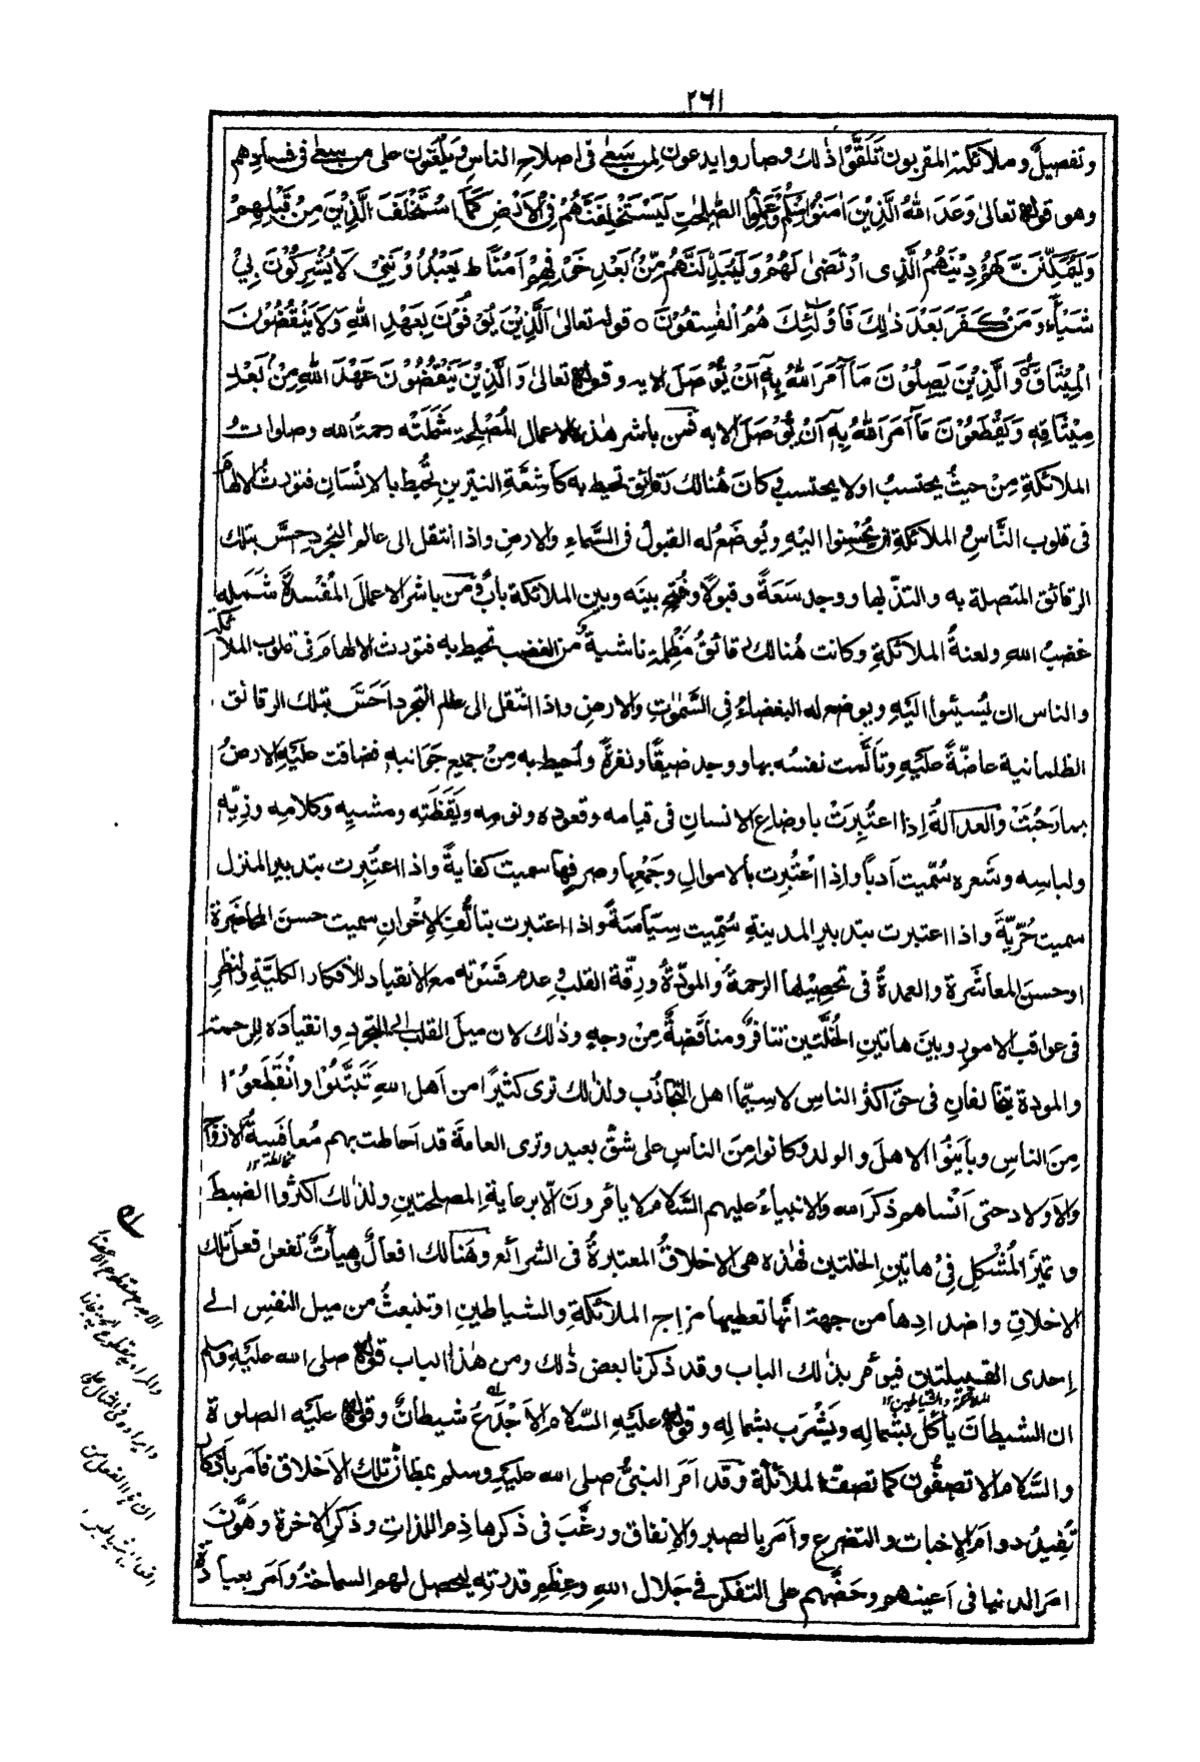 ٢٦١
وتفصيل وملائكته المقربون تَلَقَّوْا ذلك وصاروا يدعون لمن سَعٰى فى اصلاح الناس ويلعنون على من سعٰى فى فسادهم
وهو قوله تعالىٰ وَعَدَ اللهُ الَّذِيْنَ اٰمَنُوْا مِنْكُمْ وَعَمِلُوا الصّٰلِحٰتِ لَيَسْتَخْلِفَنَّهُمْ فِى الْاَرْضِ كَمَا اسْتَخْلَفَ الَّذِيْنَ مِنْ قَبْلِهِمْ
وَلَيُمَكِّنَنَّ لَهُمْ دِيْنَهُمُ الَّذِى ارْتَضٰى لَهُمْ وَلَيُبَدِّلَنَّهُمْ مِّنْ بَعْدِ خَوْفِهِمْ اَمْنًا ط يَعْبُدُوْنَنِىْ لَا يُشْرِكُوْنَ بِىْ
شَيْئًا وَمَنْ كَفَرَ بَعْدَ ذٰلِكَ فَاُولٰٓئِكَ هُمُ الْفٰسِقُوْنَ ○ قوله تعالىٰ الَّذِيْنَ يُوْفُوْنَ بِعَهْدِ اللهِ وَلَا يَنْقُضُوْنَ
الْمِيْثَاقَ وَالَّذِيْنَ يَصِلُوْنَ مَآ اَمَرَ اللهُ بِهٖٓ اَنْ يُّوْصَلَ الايه وقوله تعالىٰ وَالَّذِيْنَ يَنْقُضُوْنَ عَهْدَ اللهِ مِنْۢ بَعْدِ
مِيْثَاقِهٖ وَيَقْطَعُوْنَ مَآ اَمَرَ اللهُ بِهٖٓ اَنْ يُّوْصَلَ الايه فمن باشر هذه الاعمال المُصْلِحة شَمَلَتْه رحمةُ الله وصلواتُ
الملائكةِ مِنْ حيثُ يحتسبُ اولا يحتسب وكانَ هُنالك رَقائق تحيط به كَاَشعَّةِ النيّرين تُحيط بالانْسَانِ فتورثُ الالهامَ
فى قلوب النَّاسِ والملائكةِ ان يُحْسِنوا اليْهِ ويُوضَعُ له القبولُ فى السَّماءِ والارضِ واذا انتقل الى عالم التجرد حسَّ بتلك
الرقائق المتصلة به والتذّ بها ووجد سَعَةً وقبولًا وفُتِح بينه وبين الملائكة بابٌ ومَن باشر الاعمالَ المُفْسدةَ شَمَله
غضبُ اللهِ ولعنةُ الملائكةِ وكانت هُنالك رقائقُ مُظْلِمة ناشية من الغضب تحيط به فتورث الالهامَ فى قلوب الملائكة
والناس ان يُسيئوا اليْهِ ويوضع له البغضاءُ فى السَّمٰوٰتِ والارضِ واذا انتقل الى عالم التجرد اَحَسَّ بتلك الرقائق
الظلمانية عاضّةً عليْهِ وتَاَلَّمت نفسُه بها ووجد ضيقًا ونفرةً واُحيط به مِنْ جميع جَوَانبه فضاقت عليْهِ الارضُ
بما رَحُبَتْ والعدالةُ اِذا اعتُبِرَتْ باوضاع الانسانِ فى قيامه وقعوده ونومه ويَقَظَتِه ومشيه وكلامه وزِيّه
ولباسه وشَعره سُمّيت اَدبًا واذا اعْتُبِرت بالاموال وجَمْعِها وصرفِها سميت كفايةً واذا اعتُبِرت بتدبير المنزل
سميت حُرّيّةً واذا اعتبرت بتدبير المدينةِ سُمِّيت سِيَاسَةً واذا اعتبرت بتالُّفِ الاِخْوانِ سميت حسنَ المحاضرة
او حسنَ المعاشَرة والعمدةُ فى تحصِيْلها الرحمةُ والمودّةُ ورِقّة القلب وعدم قَسْوته مع الانقياد للافكار الكليّةِ والنظرِ
فى عواقب الامور وبينَ هاتينِ الخُلَّتين تنافرٌ ومناقَضةٌ مِنْ وجهٍ وذٰلك لان ميلَ القلب الى التجرد وانقيادَه للرحمة
والمودة يتخالفانِ فى حقّ اكثر الناسِ لاسِيّما اهل التجاذُب ولذٰلك ترى كثيرًا من اَهل اللهِ تَبَتَّلُوْا وانْقَطَعُوْا
مِنَ الناسِ وبايَنُوا الاهلَ والولد وكانوا مِنَ الناسِ على شقٍّ بعيد وترى العامةَ قد اَحاطت بهم مُعافَسةُ الازواج
مخالطة ١٢
والاَولادِ حتى اَنْساهم ذكرَ الله والانبياءُ عليهم السَّلام لا يأمرونَ الا برعاية المصلحتينِ ولذٰلك اكثروا الضبطَ
وتميّزَ المُشْكِل فِىْ هاتينِ الخلتين فهٰذه هى الاخلاقُ المعتبرةُ فى الشرائع وهُنالك افعالٌ وهيأتٌ تفعل فعلَ تلك
الاخلاقِ واضدادِها من جهة اَنَّها تعطيها مزاج الملائكةِ والشياطينِ اوتنبعثُ من ميل النفسِ الى
اِحدى القبيلتين فيؤمر بذٰلك الباب وقد ذكرنا بعض ذٰلك ومن هٰذا الباب قوله صلى الله عليْهِ وسلم
الملائكة والشياطين ١٢
ان الشيطانَ يأكُل بشماله ويَشْرَب بشماله وقوله عليْهِ السّلام الاَجْدَعُ شيطانٌ وقوله عليه الصلوة
والسَّلام الا تصفُّون كما تصفّ الملائكة وقد اَمَر النبىُّ صلى الله عليْهِ وسلم بمظانِّ تلك الاَخلاق فاَمر باَذكار
تُفِيدُ دوامَ الاِخبات والتضرع واَمَر بالصبر والاِنفاق ورغَّبَ فى ذكرها ذِم اللذاتِ وذكرِ الاٰخرة وهَوَّنَ
امرَ الدنيا فى اَعينهم وحَضَّهم على التفكر فى جَلال اللهِ وعِظَمِ قدرته ليحصل لهم السماحةُ واَمَر بعيادة